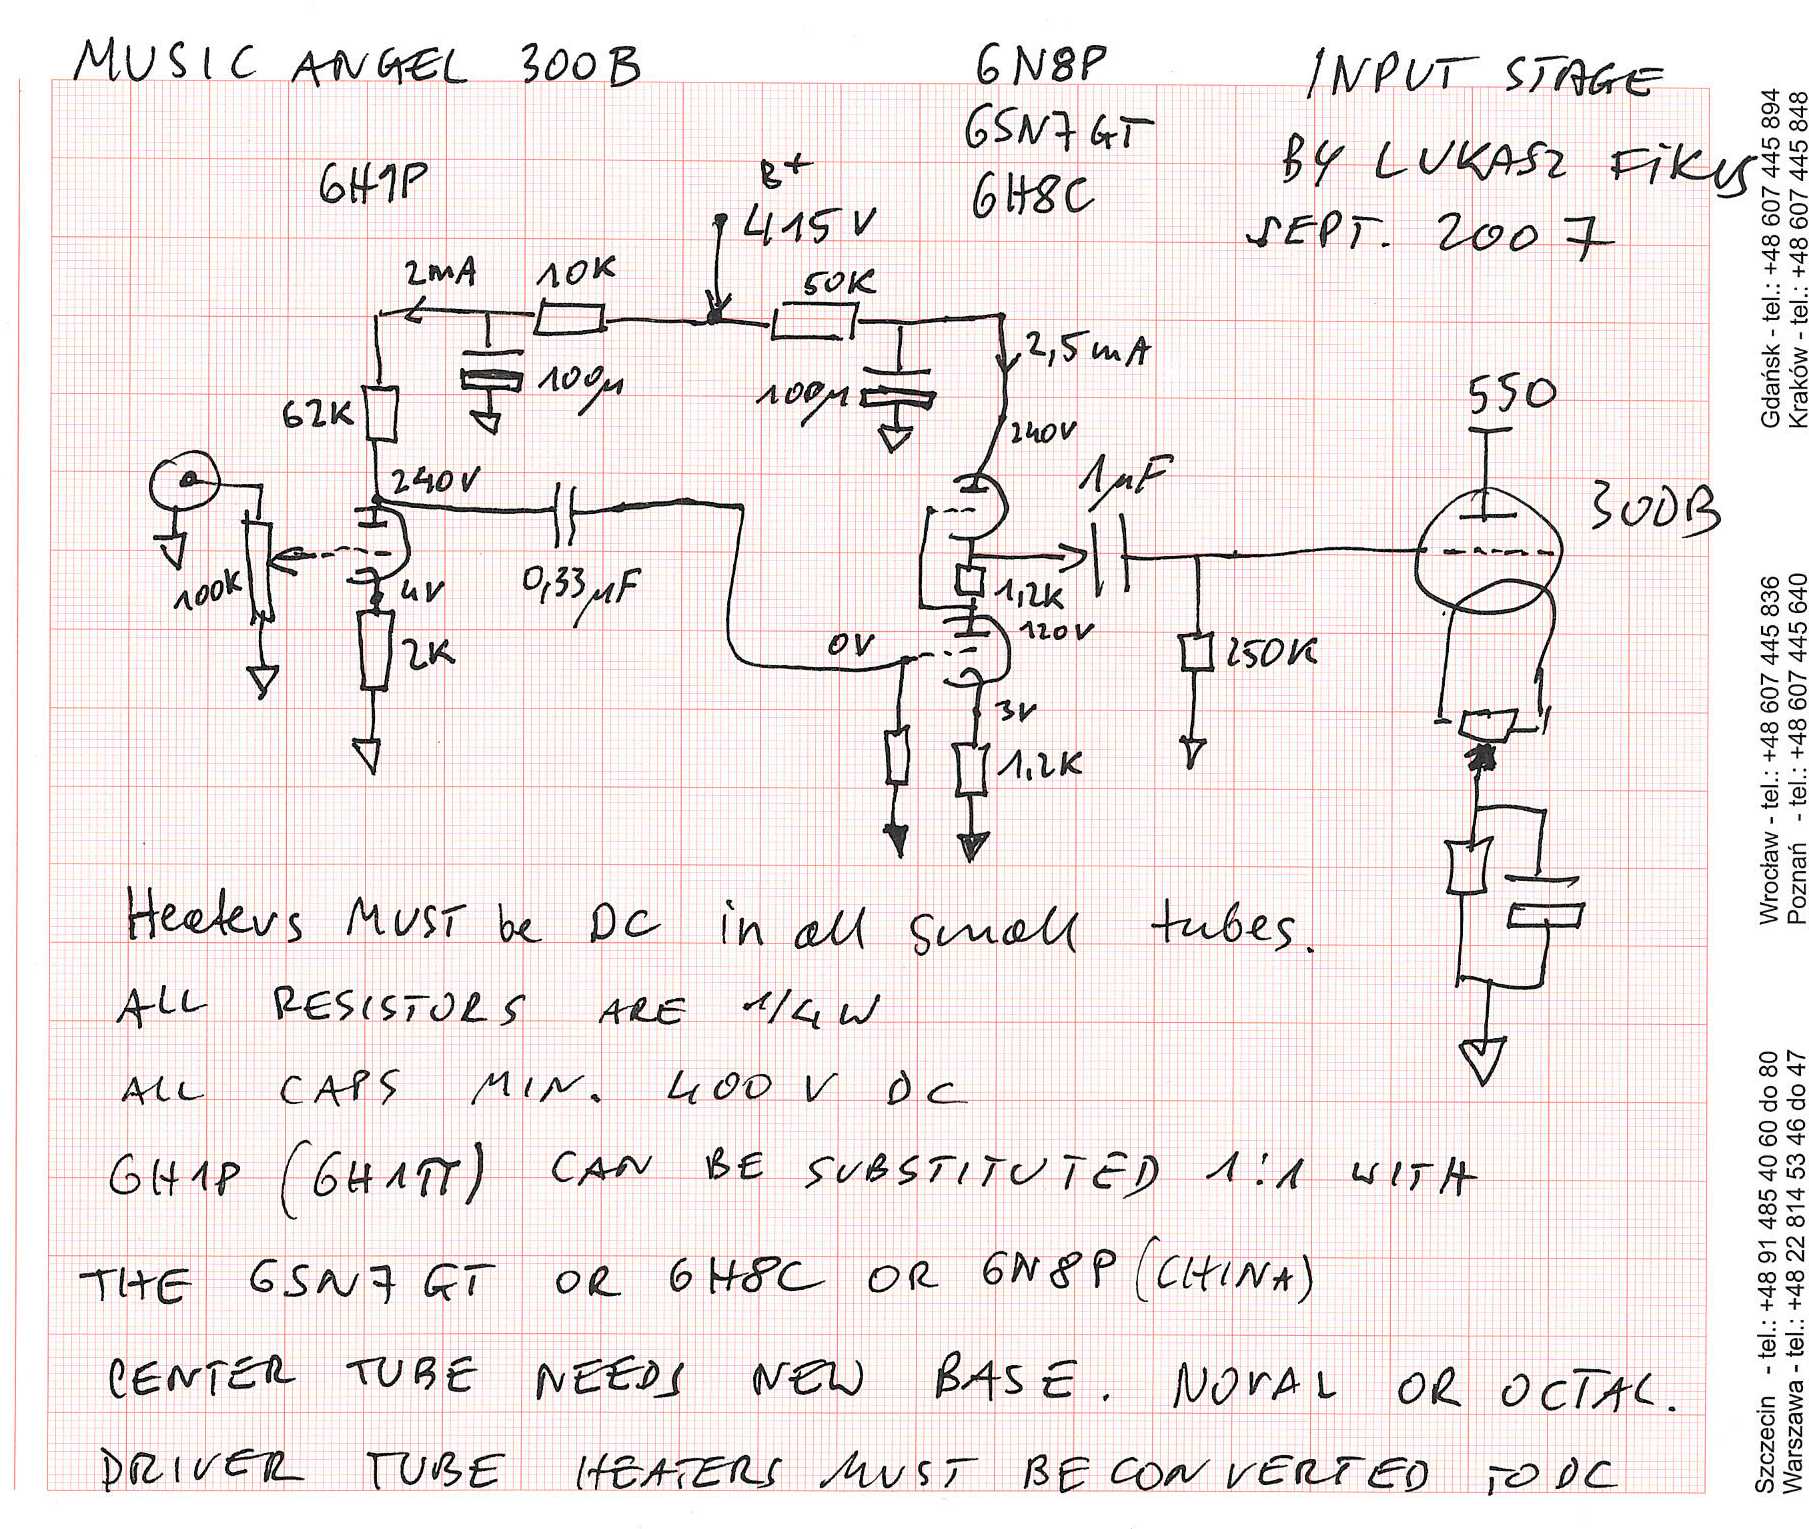 MUSIC ANGEL 300B
6N8P
INPUT STAGE
6SN7GT
BY LUKASZ FIKUS
6H1P
B+
6H8C
415V
SEPT. 2007
2mA
10K
50K
2,5mA
62K
100μ
100μ
240V
550
240V
1μF
300B
100K
4V
0,33μF
1,2K
120V
2K
0V
250K
3V
1,2K
Heaters MUST be DC in all small tubes.
ALL RESISTORS ARE 1/4W
ALL CAPS MIN. 400 V DC
6H1P (6H1П) CAN BE SUBSTITUTED 1:1 WITH
THE 6SN7GT OR 6H8C OR 6N8P (CHINA)
CENTER TUBE NEEDS NEW BASE. NOVAL OR OCTAL.
DRIVER TUBE HEATERS MUST BE CONVERTED TO DC
Gdańsk - tel.: +48 607 445 894
Kraków - tel.: +48 607 445 848
Wrocław - tel.: +48 607 445 836
Poznań - tel.: +48 607 445 640
Szczecin - tel.: +48 91 485 40 60 do 80
Warszawa - tel.: +48 22 814 53 46 do 47